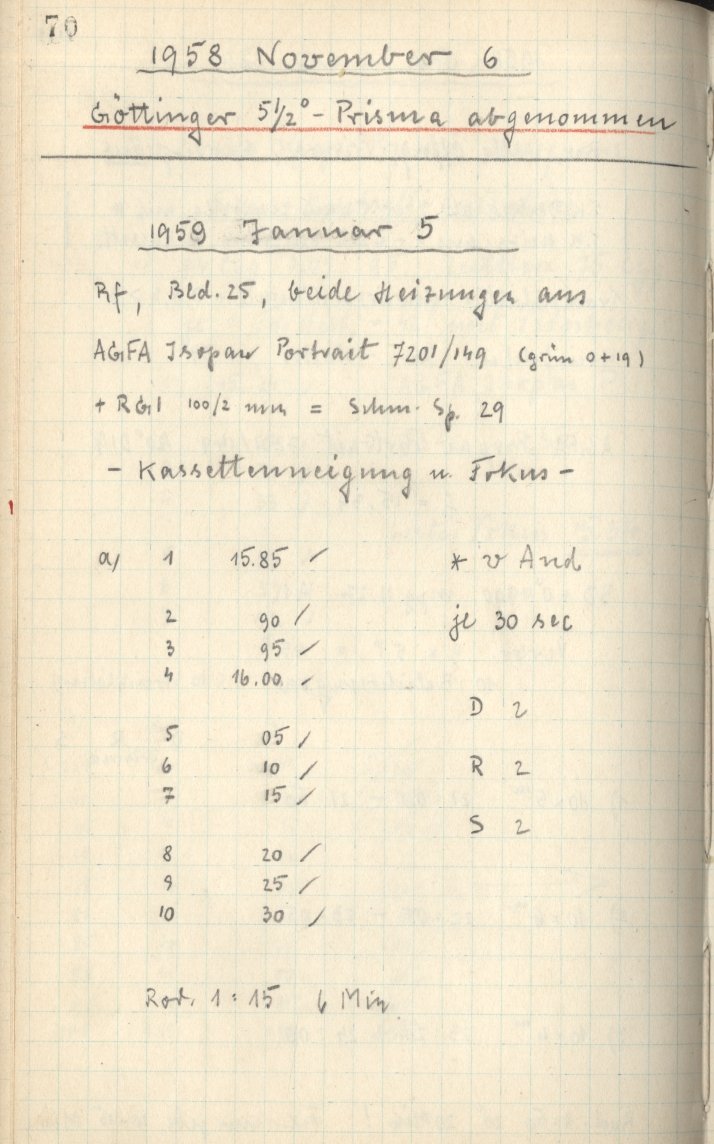 70
1958 November 6
Göttinger 5 1/2° - Prisma abgenommen
1959 Januar 5
Rf, Bld. 25, beide Heizungen aus
AGFA Isopan Portrait 7201/149 (grün 0+19)
+ RG1 100/2 mm = Schm. Sp. 29
- Kassettenneigung u. Fokus -
a) 1 15.85 / * v And
2 90 / je 30 sec
3 95 /
4 16.00 /
D 2
5 05 /
6 10 / R 2
7 15 /
S 2
8 20 /
9 25 /
10 30 /
Rod. 1:15 6 Min